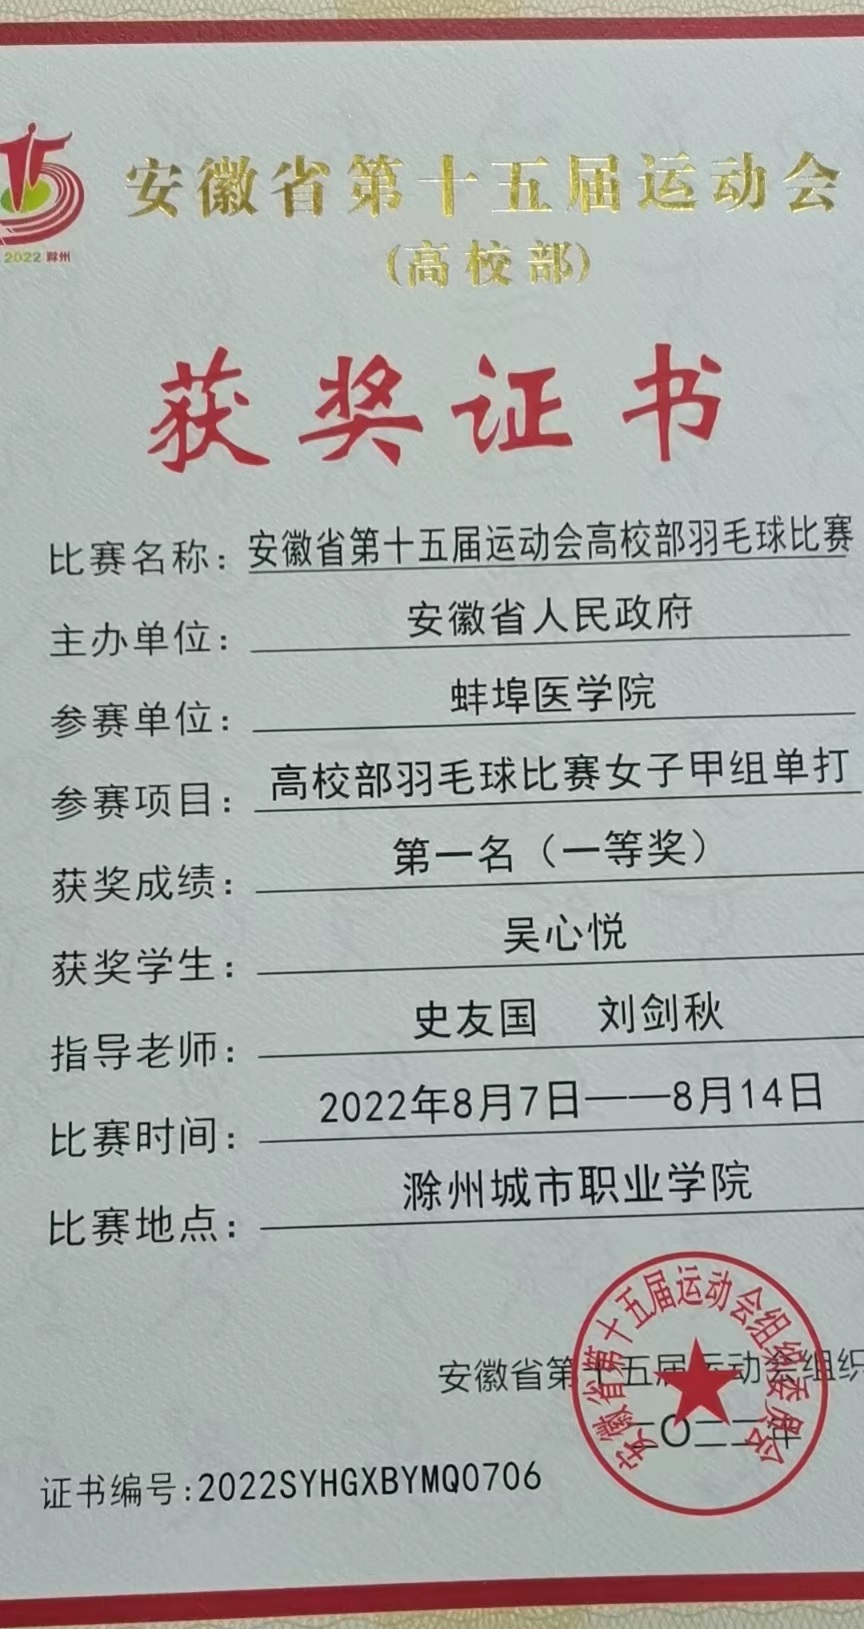 2022 滁州
安徽省第十五届运动会
(高校部)
获奖证书
比赛名称：安徽省第十五届运动会高校部羽毛球比赛
主办单位：安徽省人民政府
参赛单位：蚌埠医学院
参赛项目：高校部羽毛球比赛女子甲组单打
获奖成绩：第一名（一等奖）
获奖学生：吴心悦
指导老师：史友国 刘剑秋
比赛时间：2022年8月7日——8月14日
比赛地点：滁州城市职业学院
安徽省第十五届运动会组织委员会
安徽省第十五届运动会组织
二〇二二年
证书编号:2022SYHGXBYMQ0706